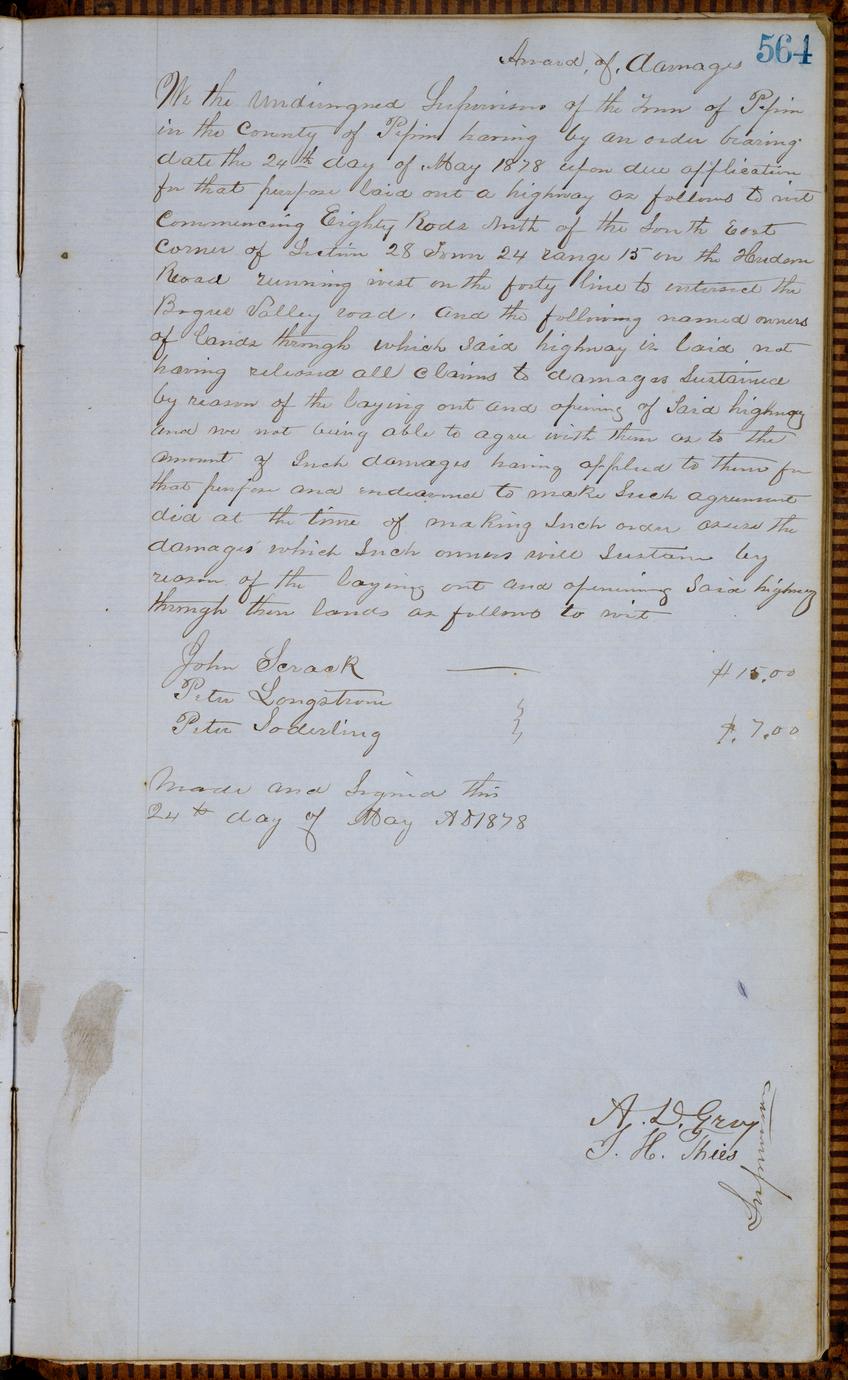 564
Award of Damages
We the undersigned Supervisors of the Town of Pepin
in the County of Pepin having by an order bearing
date the 24th day of May 1878 upon due application
for that purpose laid out a highway as follows to wit
Commencing Eighty Rods North of the South East
Corner of Section 28 Town 24 range 15 on the Hudson
Road running west on the forty line to intersect the
Bogus Valley road, and the following named owners
of lands through which Said highway is laid not
having released all claims to damages Sustained
by reason of the laying out and opening of Said highway
and we not being able to agree with them as to the
amount of Such damages having applied to them for
that purpose and endeavored to make Such agreement
did at the time of making Such order assess the
damages which Such owners will Sustain by
reason of the laying out and openining Said highway
through their lands as follows to wit
John Scrack — $15.00
Peter Longstrom
Peter Soderling $7.00
Made and Signed this
24th day of May AD1878
A. D. Gray
T. H. Thies
Supervisors